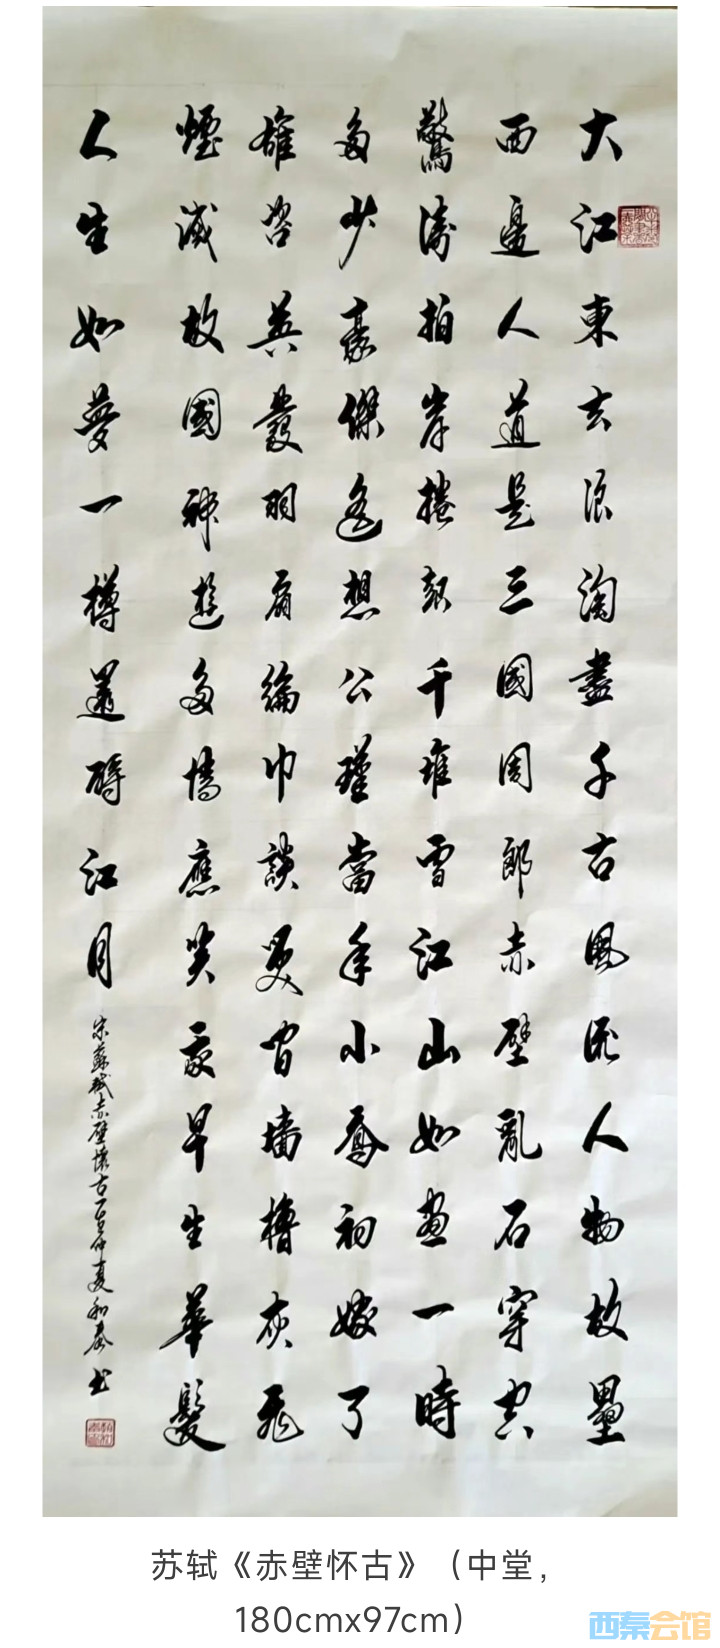 大江東去浪淘盡千古風流人物故壘
西邊人道是三國周郎赤壁亂石穿空
驚濤拍岸捲起千堆雪江山如畫一時
多少豪傑遙想公瑾當年小喬初嫁了
雄姿英發羽扇綸巾談笑間墙櫓灰飛
煙滅故國神遊多情應笑我早生華髮
人生如夢一樽還酹江月
宋蘇軾赤壁懷古仲夏和泰书
苏轼《赤壁怀古》（中堂，
180cmx97cm）
西秦会馆